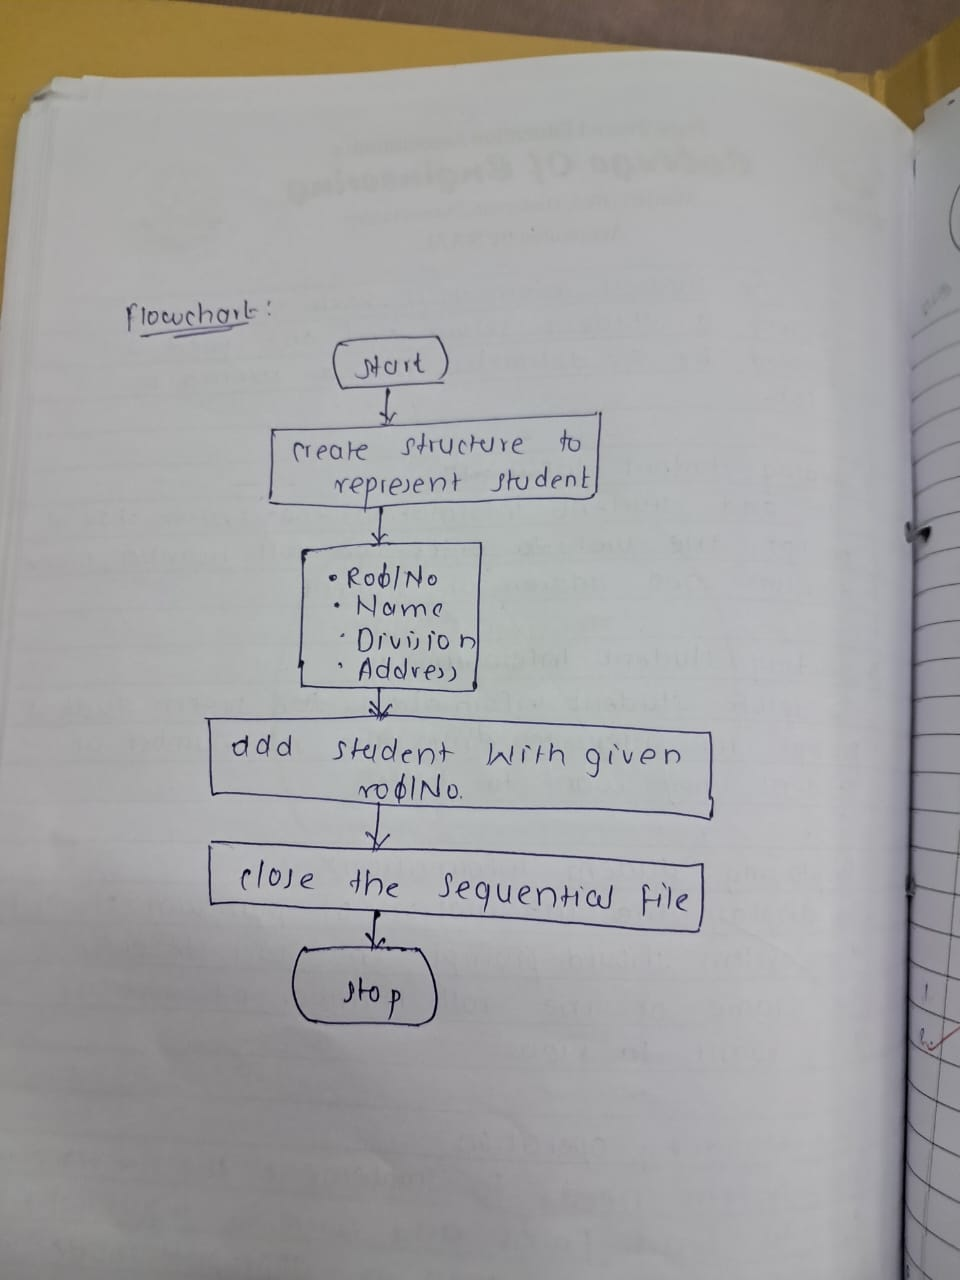 Flowchart:
start
create structure to
represent student
• Roll No
• Name
• Division
• Address
add student with given
roll No.
close the sequential file
stop